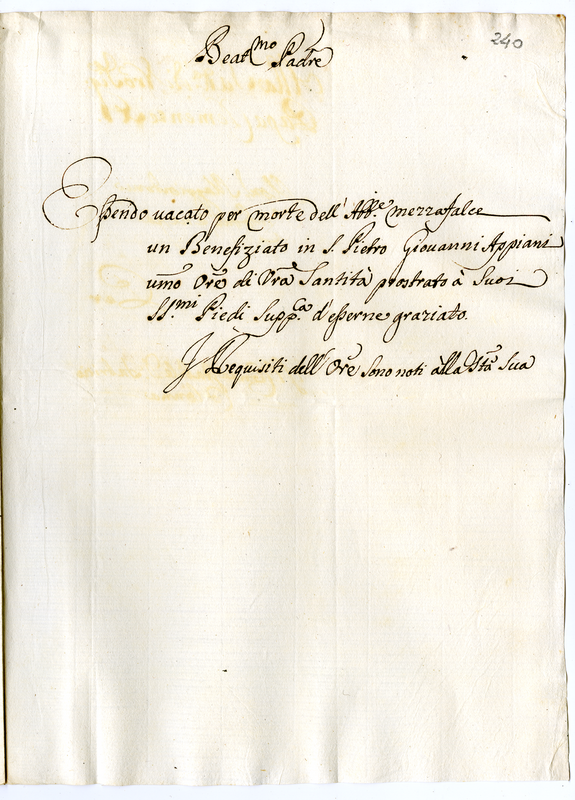 240
Beat.mo Padre
Essendo vacato per morte dell' Abb.e Mezzafalce
un Benefiziato in S. Pietro Giovanni Appiani
umo Ore di Vra Santità prostrato à Suoi
SS.mi Piedi Supp.ca d'esserne graziato.
I Requisiti dell' Ore sono noti alla Stà Sua